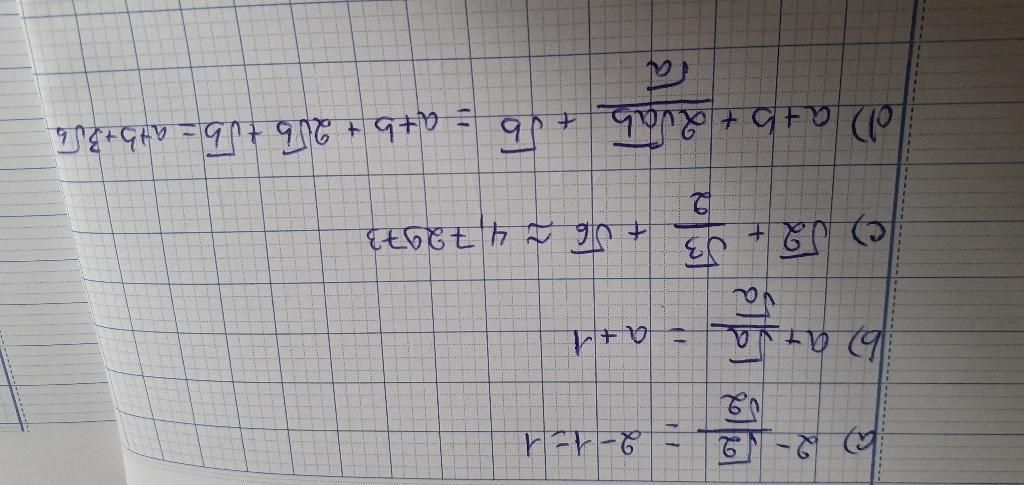 a) 2 - √2/√2 = 2 - 1 = 1
b) a + √a/√a = a + 1
c) √2 + √3/2 + √6 ≈ 4,72973
d) a + b + 2√ab/√a + √b = a + b + 2√b + √b = a + b + 3√b